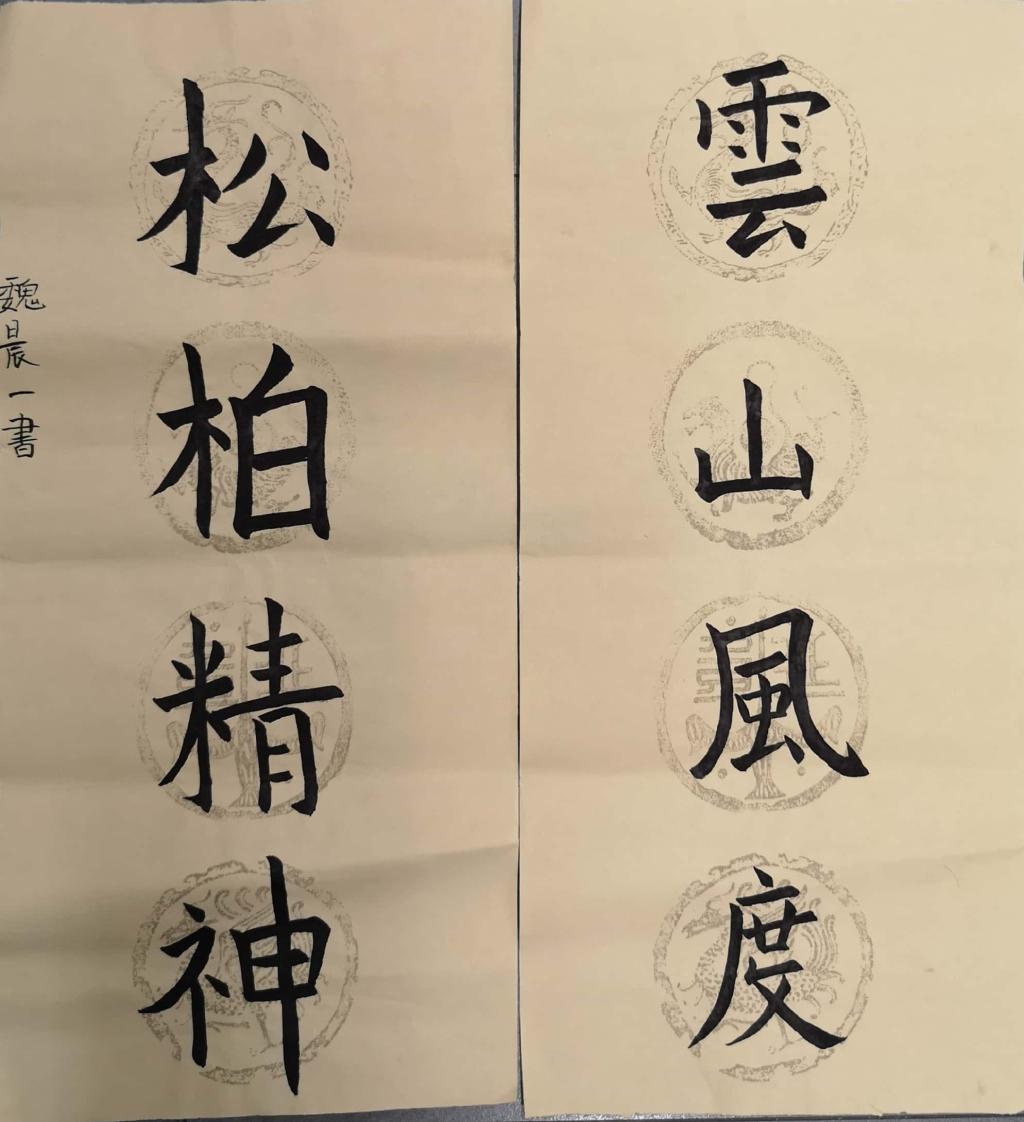 雲山風度
松柏精神
魏晨一書